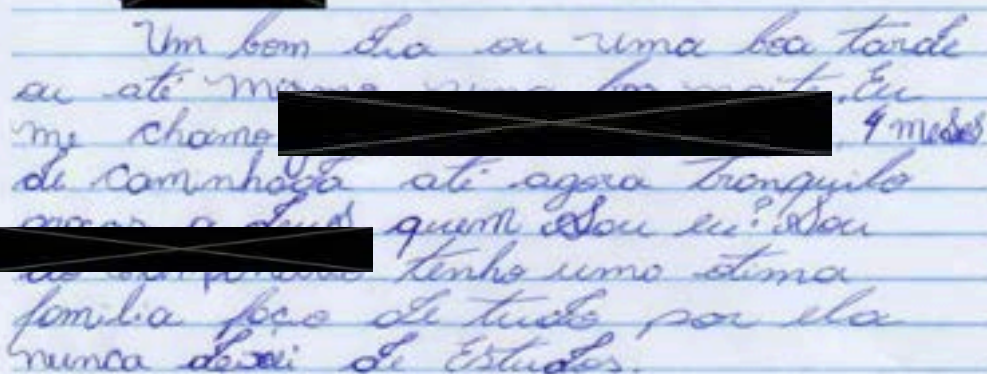 Um bom dia ou uma boa tarde
ou até mesmo uma boa noite. Eu
me chamo , 4 meses
de caminhada até agora tranquilo
graças a Deus quem sou eu? Sou
tenho uma otima
familia faço de tudo por ela
nunca deixei de Estudos.